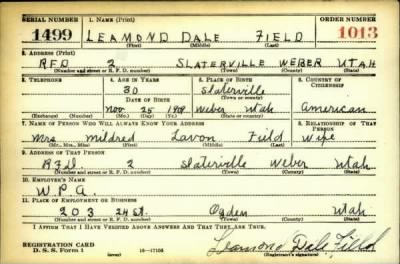 SERIAL NUMBER 1. NAME (Print) ORDER NUMBER
1499 LEAMOND DALE FIELD 1013
(First) (Middle) (Last)
2. ADDRESS (Print)
RFD 2 SLATERVILLE WEBER UTAH
(Number and street or R. F. D. number) (Town) (County) (State)
3. TELEPHONE 4. AGE IN YEARS 5. PLACE OF BIRTH 6. COUNTRY OF CITIZENSHIP
30 Slaterville
DATE OF BIRTH (Town or county)
Nov 25 1909 Weber Utah American
(Exchange) (Number) (Mo.) (Day) (Yr.) (State or country)
7. NAME OF PERSON WHO WILL ALWAYS KNOW YOUR ADDRESS 8. RELATIONSHIP OF THAT PERSON
Mrs Mildred Lavon Field Wife
(Mr., Mrs., Miss) (First) (Middle) (Last)
9. ADDRESS OF THAT PERSON
R.F.D. 2 Slaterville Weber Utah
(Number and street or R. F. D. number) (Town) (County) (State)
10. EMPLOYER'S NAME
W.P.A.
11. PLACE OF EMPLOYMENT OR BUSINESS
203 24 St. Ogden Utah
(Number and street or R. F. D. number) (Town) (County) (State)
I AFFIRM THAT I HAVE VERIFIED ABOVE ANSWERS AND THAT THEY ARE TRUE.
REGISTRATION CARD
D. S. S. Form 1 (over) 16—17105 Leamond Dale Field
(Registrant's signature)